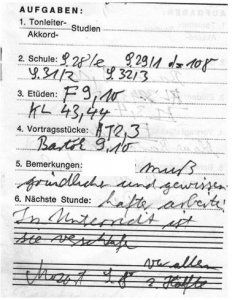 AUFGABEN:
1. Tonleiter-
Akkord- Studien
2. Schule: S.28/e S.29/1 d=108
S.31/2 S.32/3
3. Etüden: F 9, 10
KL 43,44
4. Vortragsstücke: AT2,3
Bartók 9.10
5. Bemerkungen: muß
gründlicher und gewissen-
6. Nächste Stunde: hafte arbeiten
In Unterricht ist
sie
Mozart S.8 vor allem
2. Hälfte